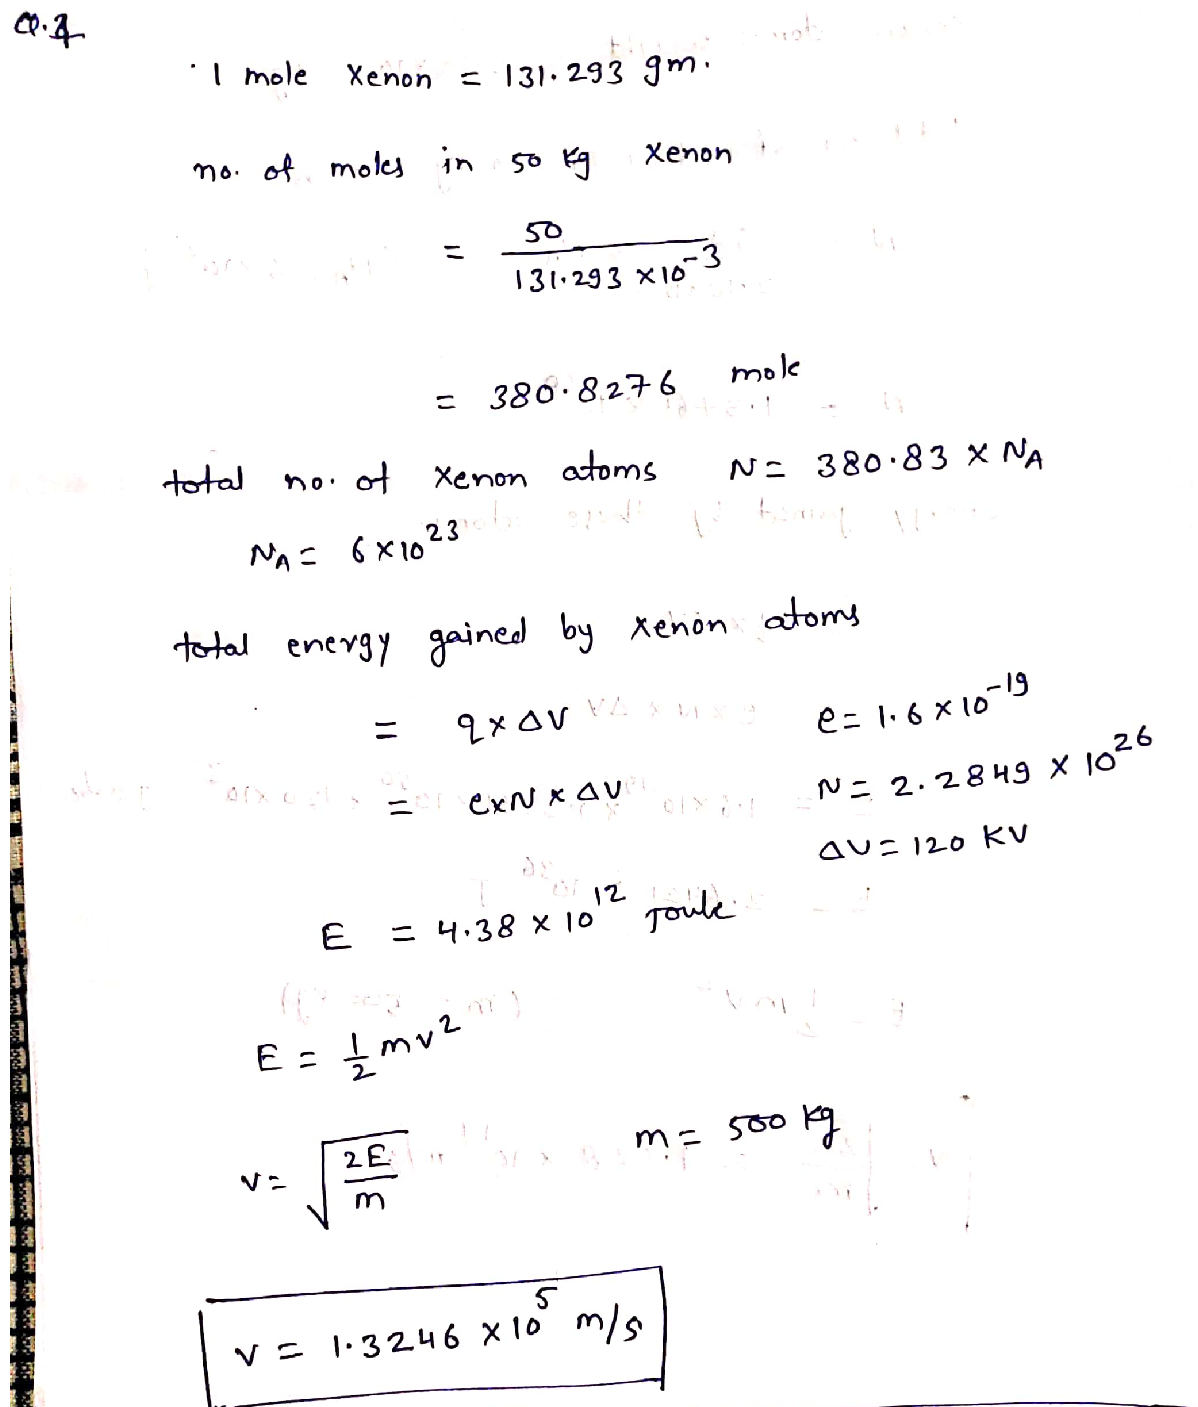 Q.4
1 mole Xenon = 131.293 gm.
no. of moles in 50 kg Xenon
= 50 / 131.293 × 10^-3
= 380.8276 mole
total no. of Xenon atoms N = 380.83 × N_A
N_A = 6 × 10^23
total energy gained by xenon atoms
= q × ΔV e = 1.6 × 10^-19
= e × N × ΔV N = 2.2849 × 10^26
ΔV = 120 KV
E = 4.38 × 10^12 Joule
E = 1/2 mv^2
v = √(2E/m) m = 500 kg
v = 1.3246 × 10^5 m/s